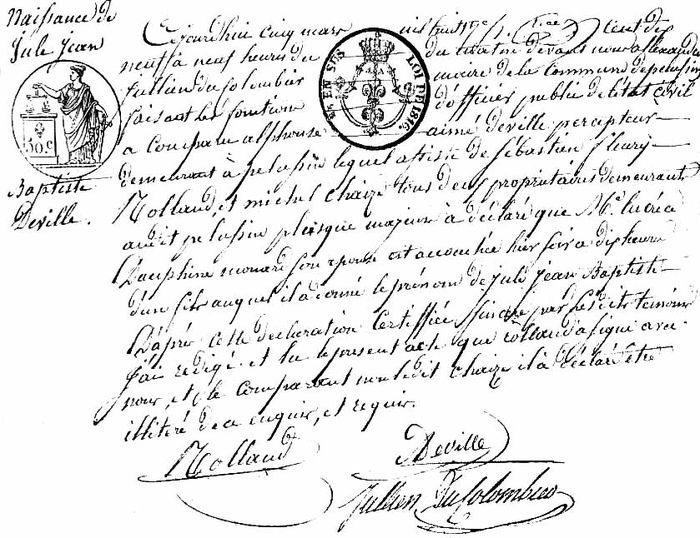 Naissance de
Jule Jean
Baptiste
Deville.
30.c
EN SUS LOI DE 1816
Cejourdhui cinq mars mil huit cent
neuf à neuf heures du du matin devant nous alexandre
jullien du colombier maire de la commune de pelussin
faisant les fonctions d'officier public de l'etat civil
a comparu alphonse aimé deville percepteur
demeurant à pelussin lequel assisté de sébastien fleury
Rolland, et michel chaize tous deux propriétaires demeurants
audit pelussin plusque majeurs à déclaré que Me lucréce
Dauphine monard son epouse est accouchée hier soir a dix heures
d'un fils auquel il à donné le prénom de jule jean Baptiste
D'après cette declaration Certiffiée sincere par lesdits temoins
j'ai redigé et lu le present acte que rolland a signé avec
nous, et le comparant non ledit chaize il à déclaré etre
illiteré de ce enquis, et requis.
Rolland Deville
Jullien Du Colombier